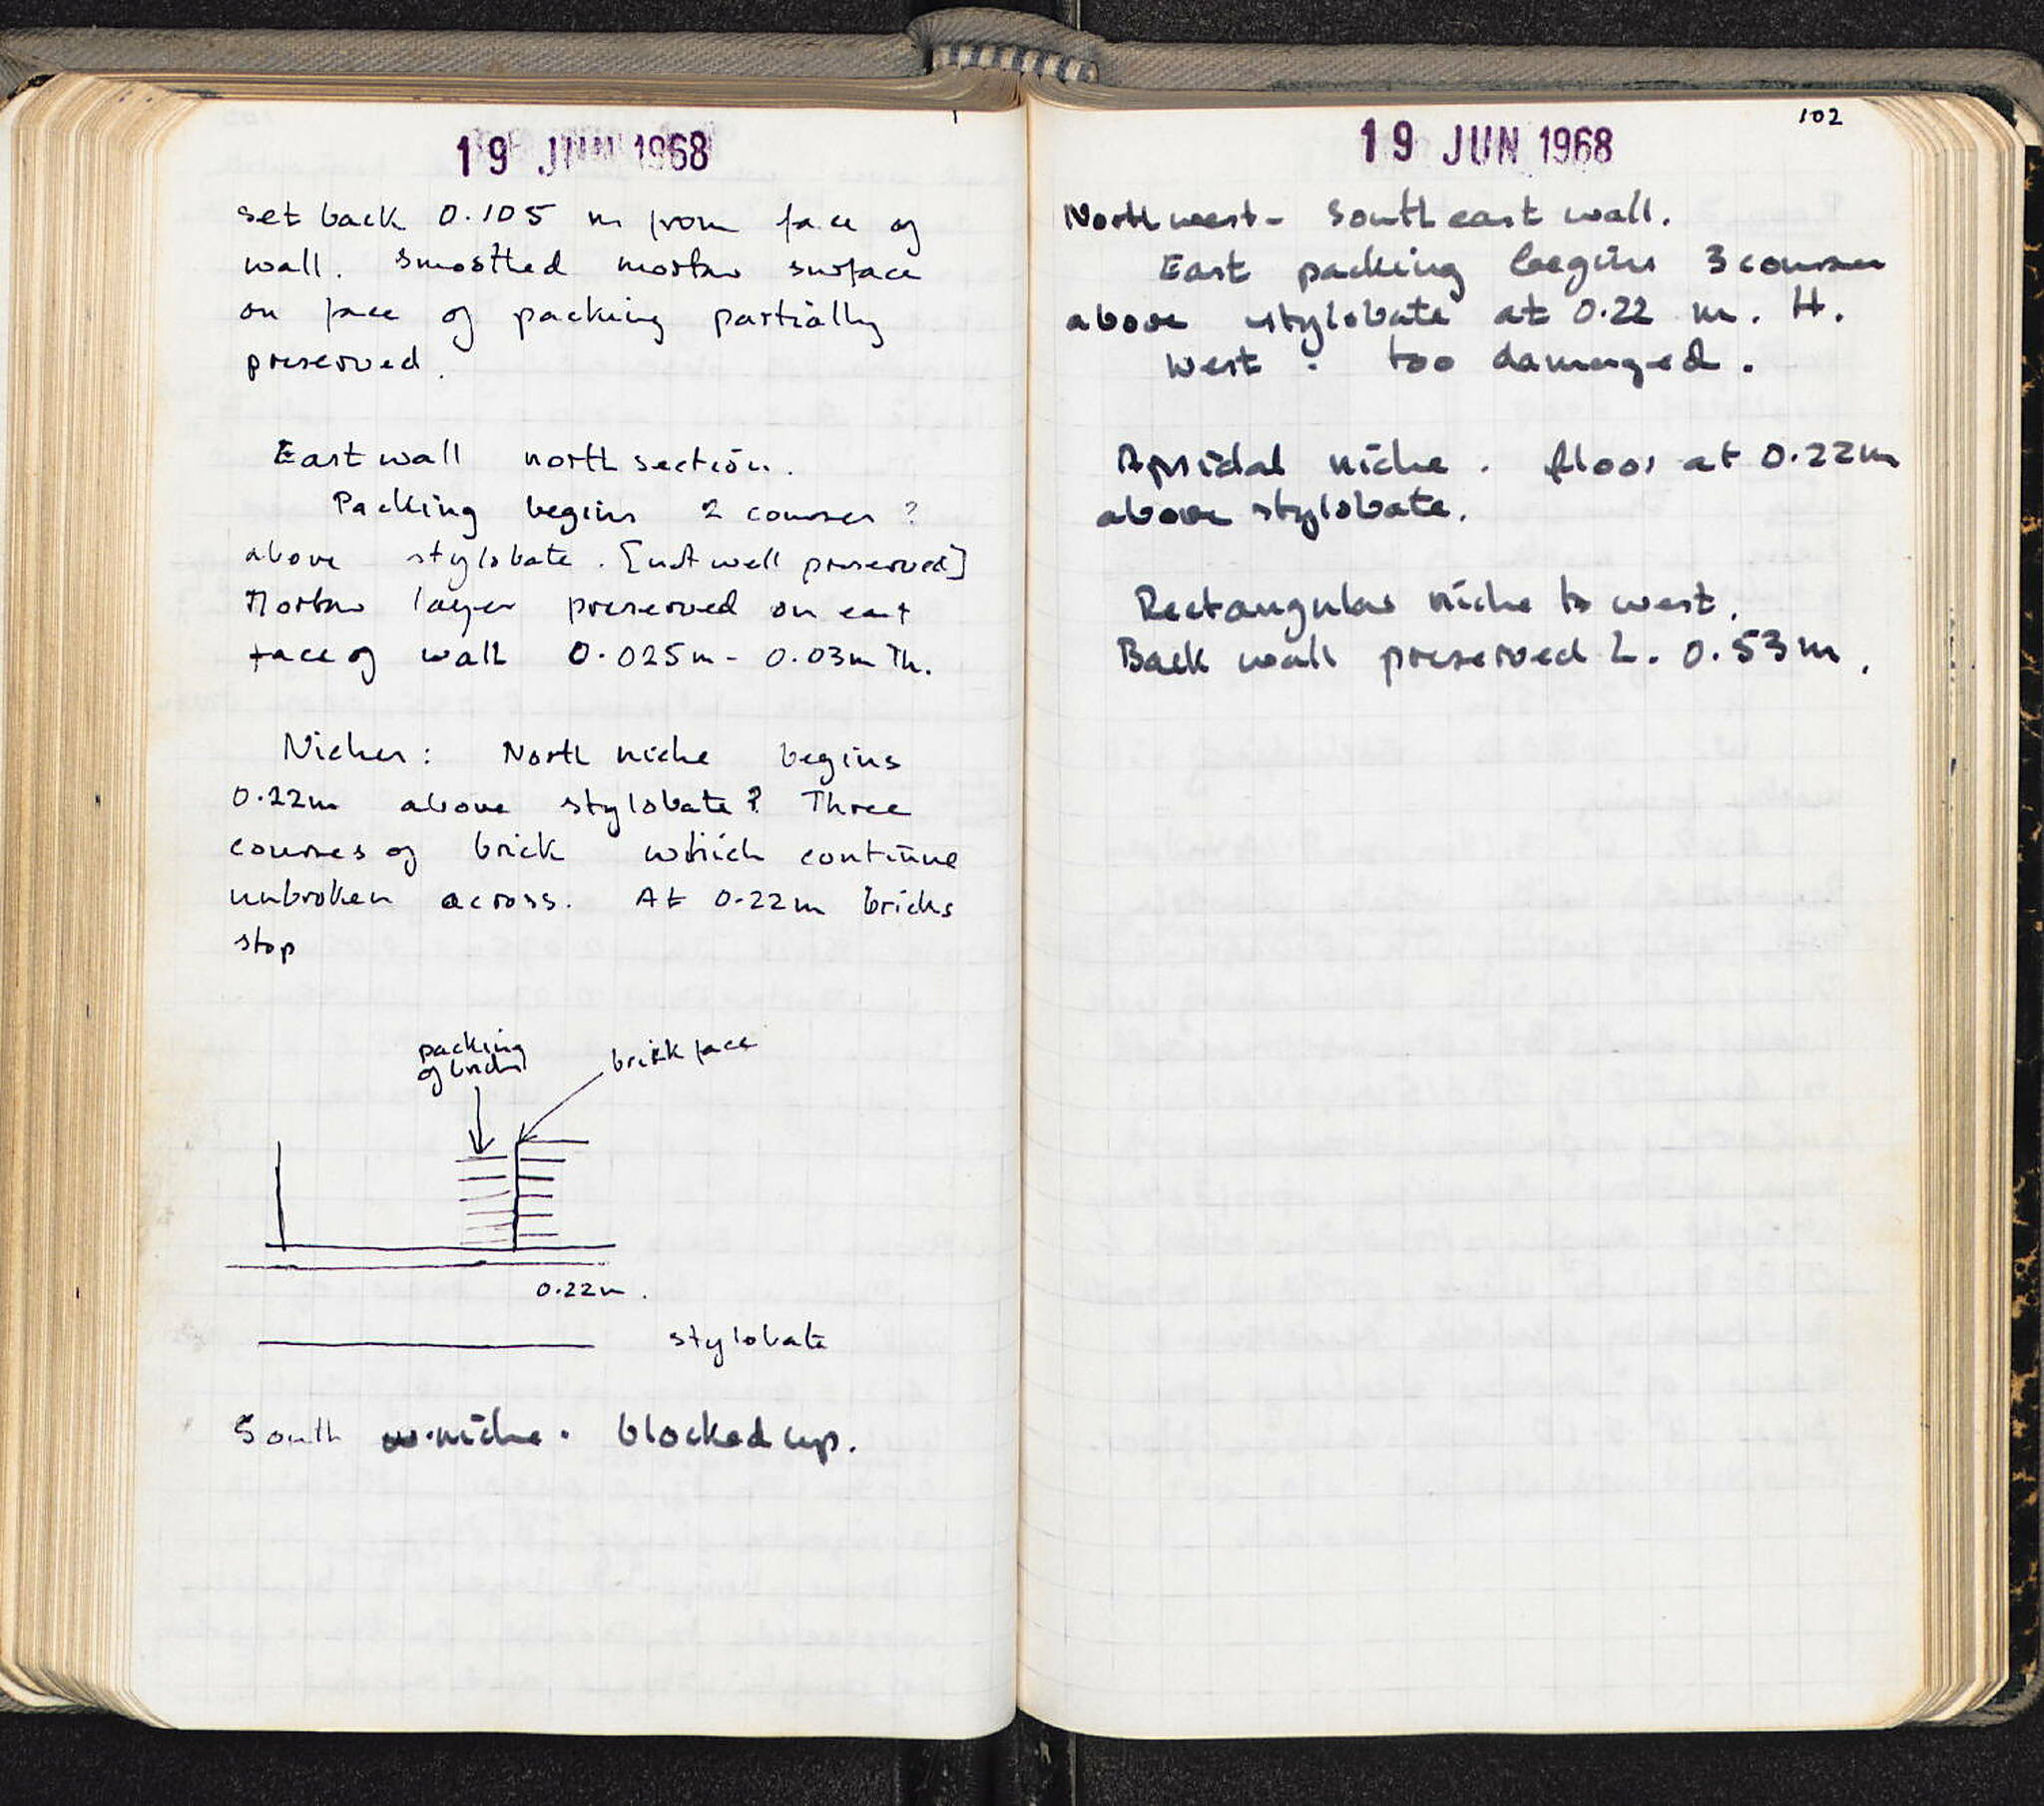 19 JUN 1968
set back 0.105 m from face of
wall. Smoothed mortar surface
on face of packing partially
preserved.
East wall north section.
Packing begins 2 courses ?
above stylobate. [not well preserved]
Mortar layer preserved on east
face of wall 0.025m - 0.03m Th.
Niches: North niche begins
0.22m above stylobate? Three
courses of brick which continue
unbroken across. At 0.22m bricks
stop
packing
of bricks
brick face
0.22m.
stylobate
South niche. blocked up.
102
19 JUN 1968
North west - South east wall.
East packing begins 3 courses
above stylobate at 0.22 m. H.
West : too damaged.
Apsidal niche. floor at 0.22m
above stylobate.
Rectangular niche to west.
Back wall preserved L. 0.53m.